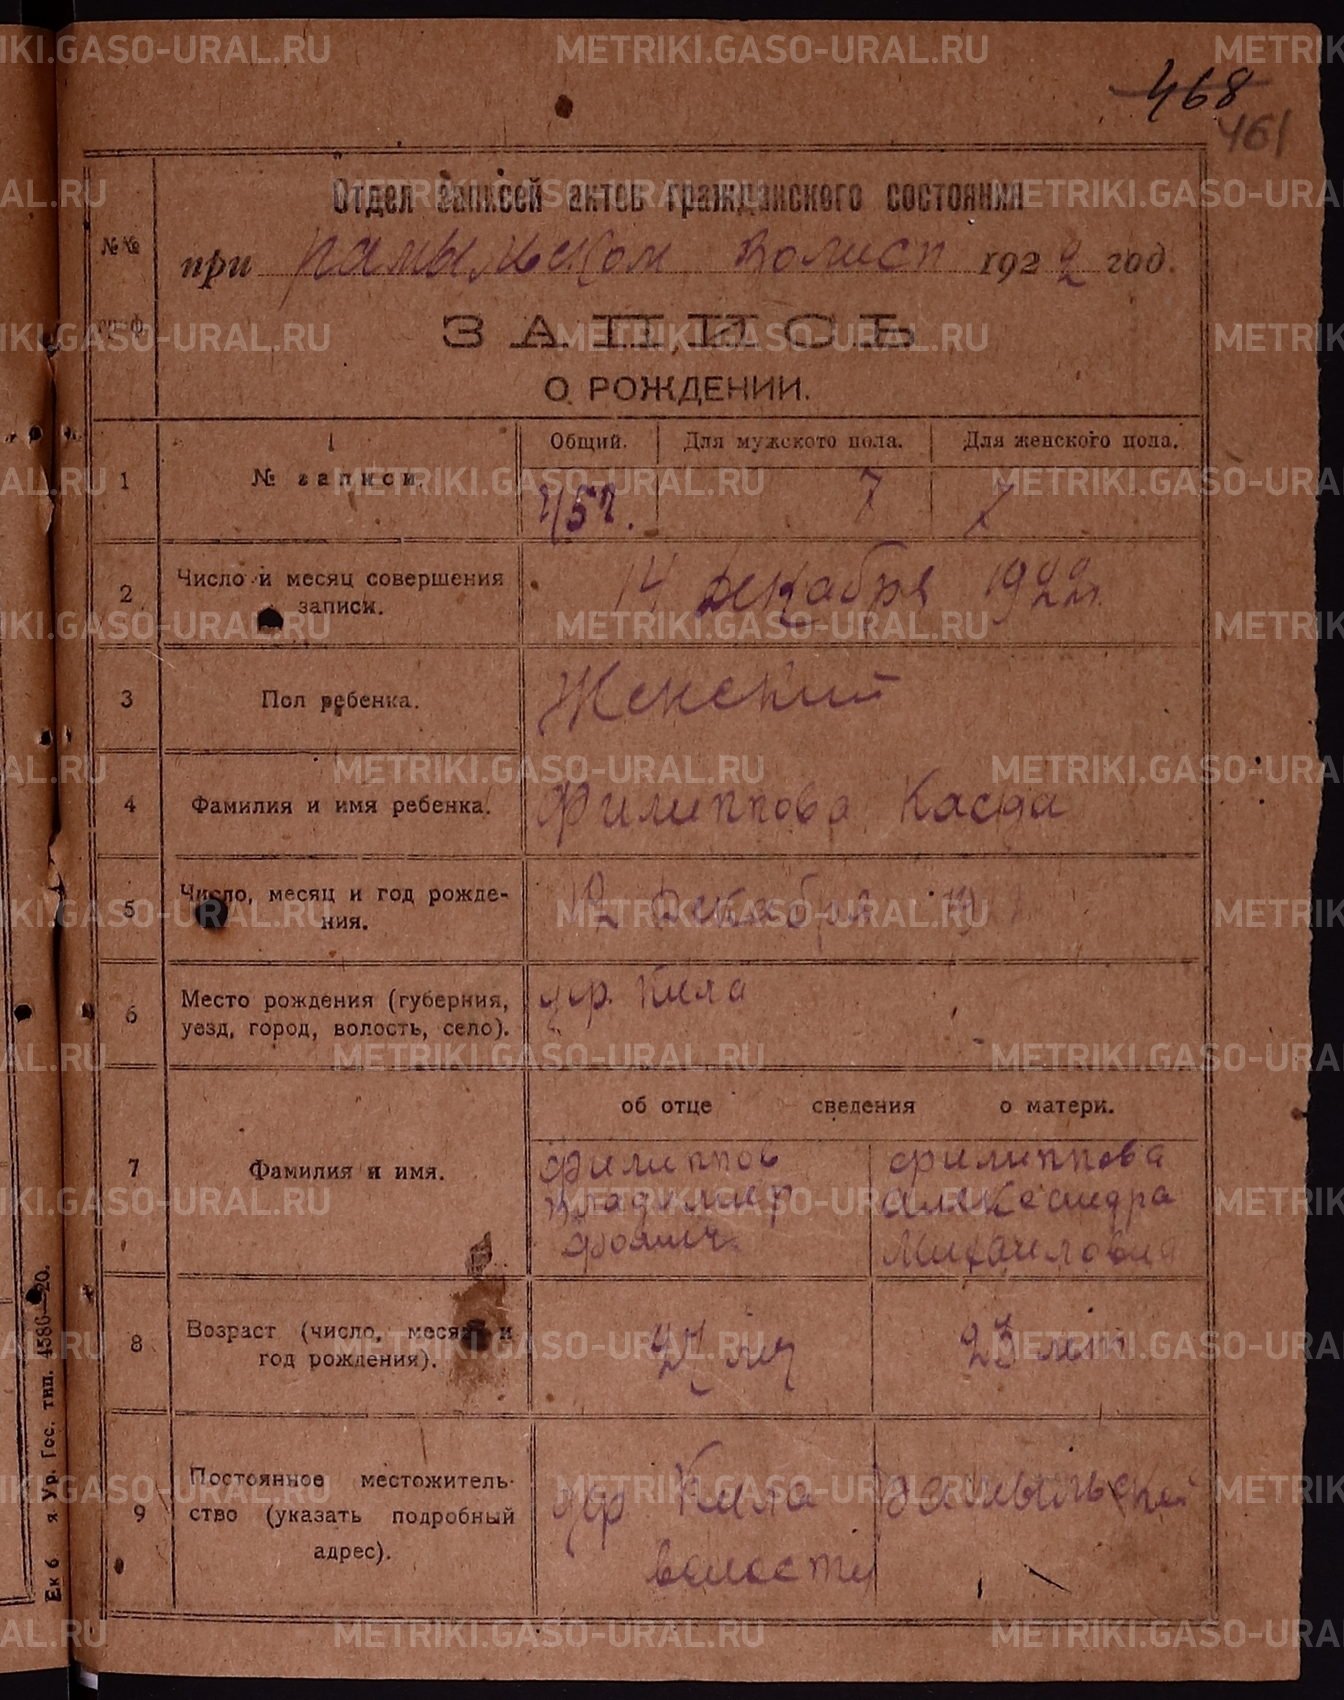 468
461
Отдел записей актов гражданского состояния
№№ граф
при Рамыльском Волисп 1922 год.
ЗАПИСЬ
О РОЖДЕНИИ.
1 № записи. Общий. Для мужского пола. Для женского пола.
7 7
2 Число и месяц совершения записи. 14 Декабря 1922 г.
3 Пол ребенка. Женский
4 Фамилия и имя ребенка. Филиппова
5 Число, месяц и год рожде-
ния. 12 Декабря 19
6 Место рождения (губерния,
уезд, город, волость, село). дер. Кила
об отце сведения о матери.
7 Фамилия и имя.
Филиппов Филиппова
Владимир Александра
Михайловна
8 Возраст (число, месяц и
год рождения). 27 лет 23 лет
9 Постоянное местожитель-
ство (указать подробный
адрес).
дер Кила
волости
Ур. Гос. тип. 4586—20.
METRIKI.GASO-URAL.RU